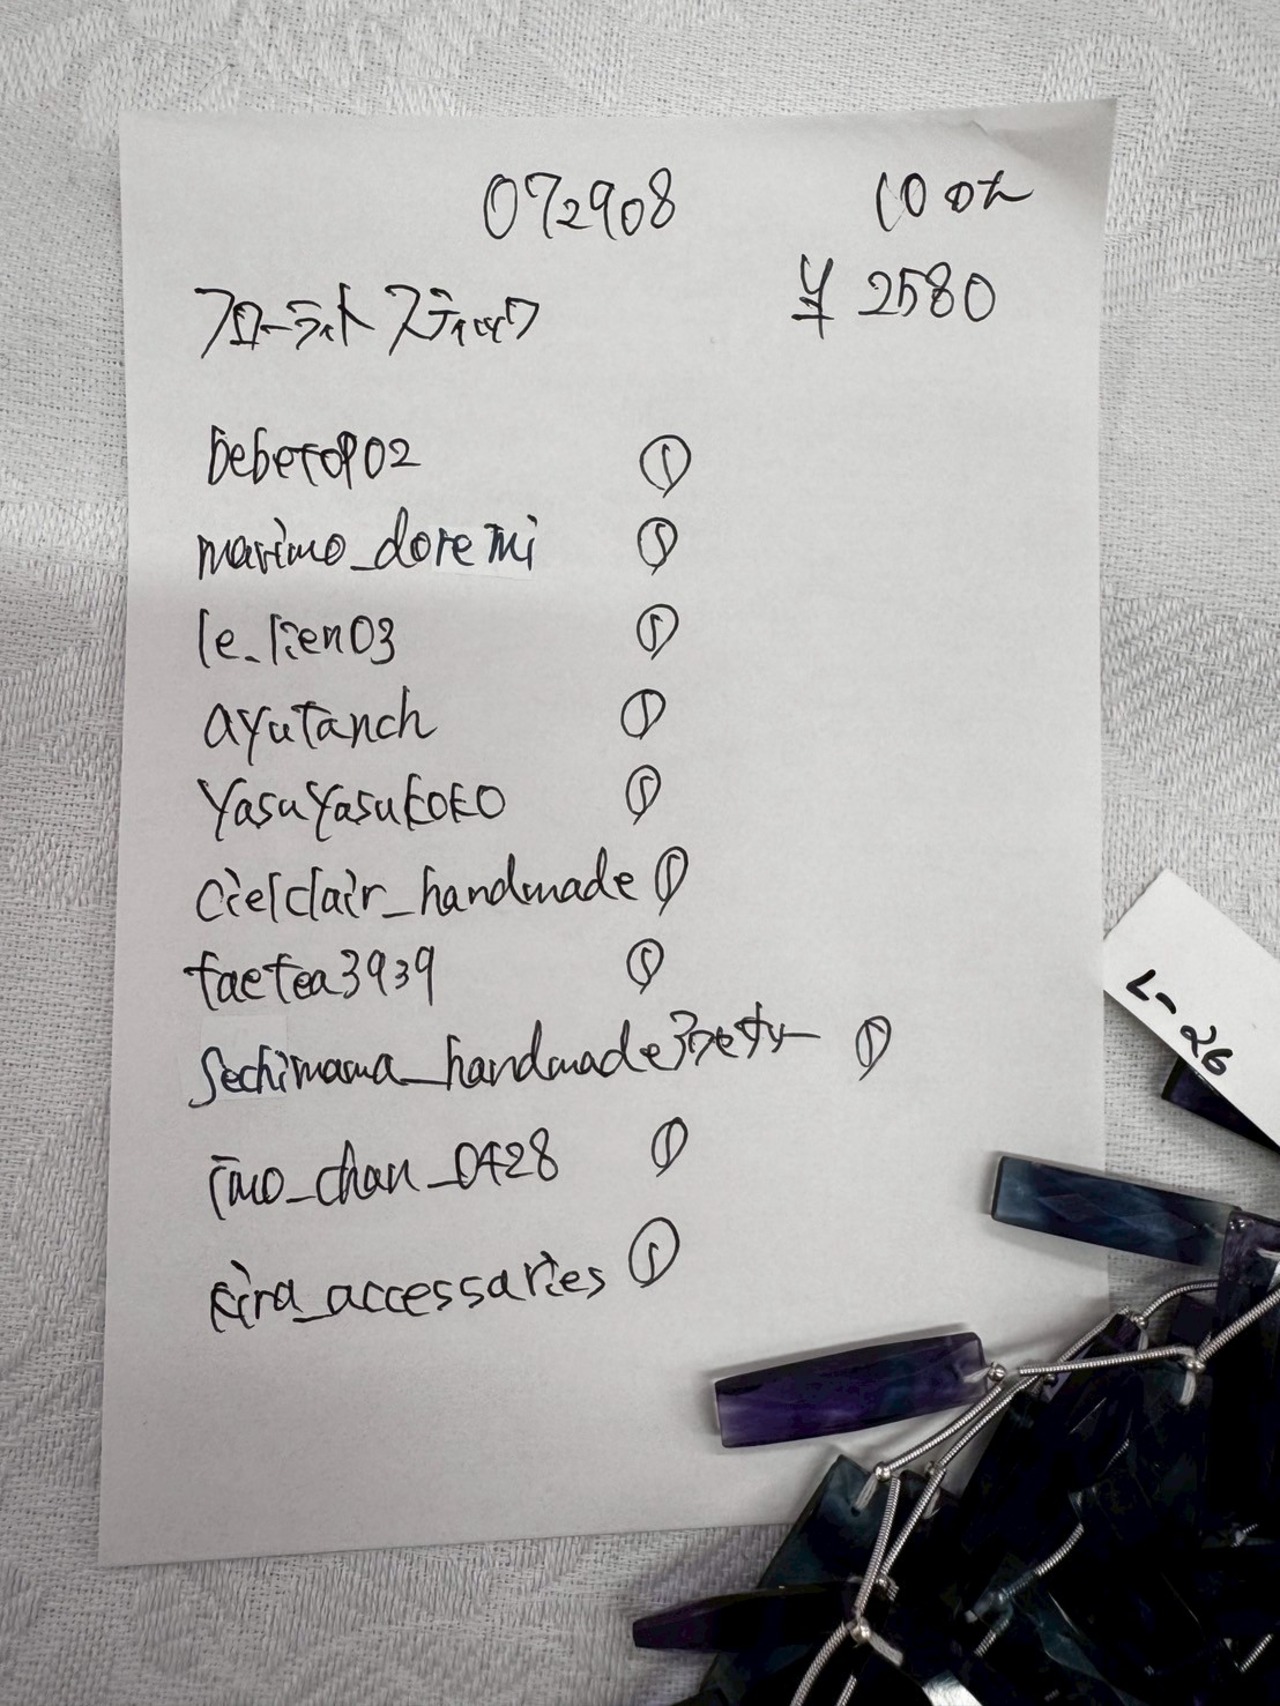 072908
¥ 2580
フローライト スティック
bebeto902 ①
marimo_doremi ①
le_lien03 ①
ayutanch ①
yasuyasukoko ①
cielclair_handmade ①
taetea3939 ①
sechimama_handmade ①
imo_chan_0428 ①
kira_accessaries ①
L-26